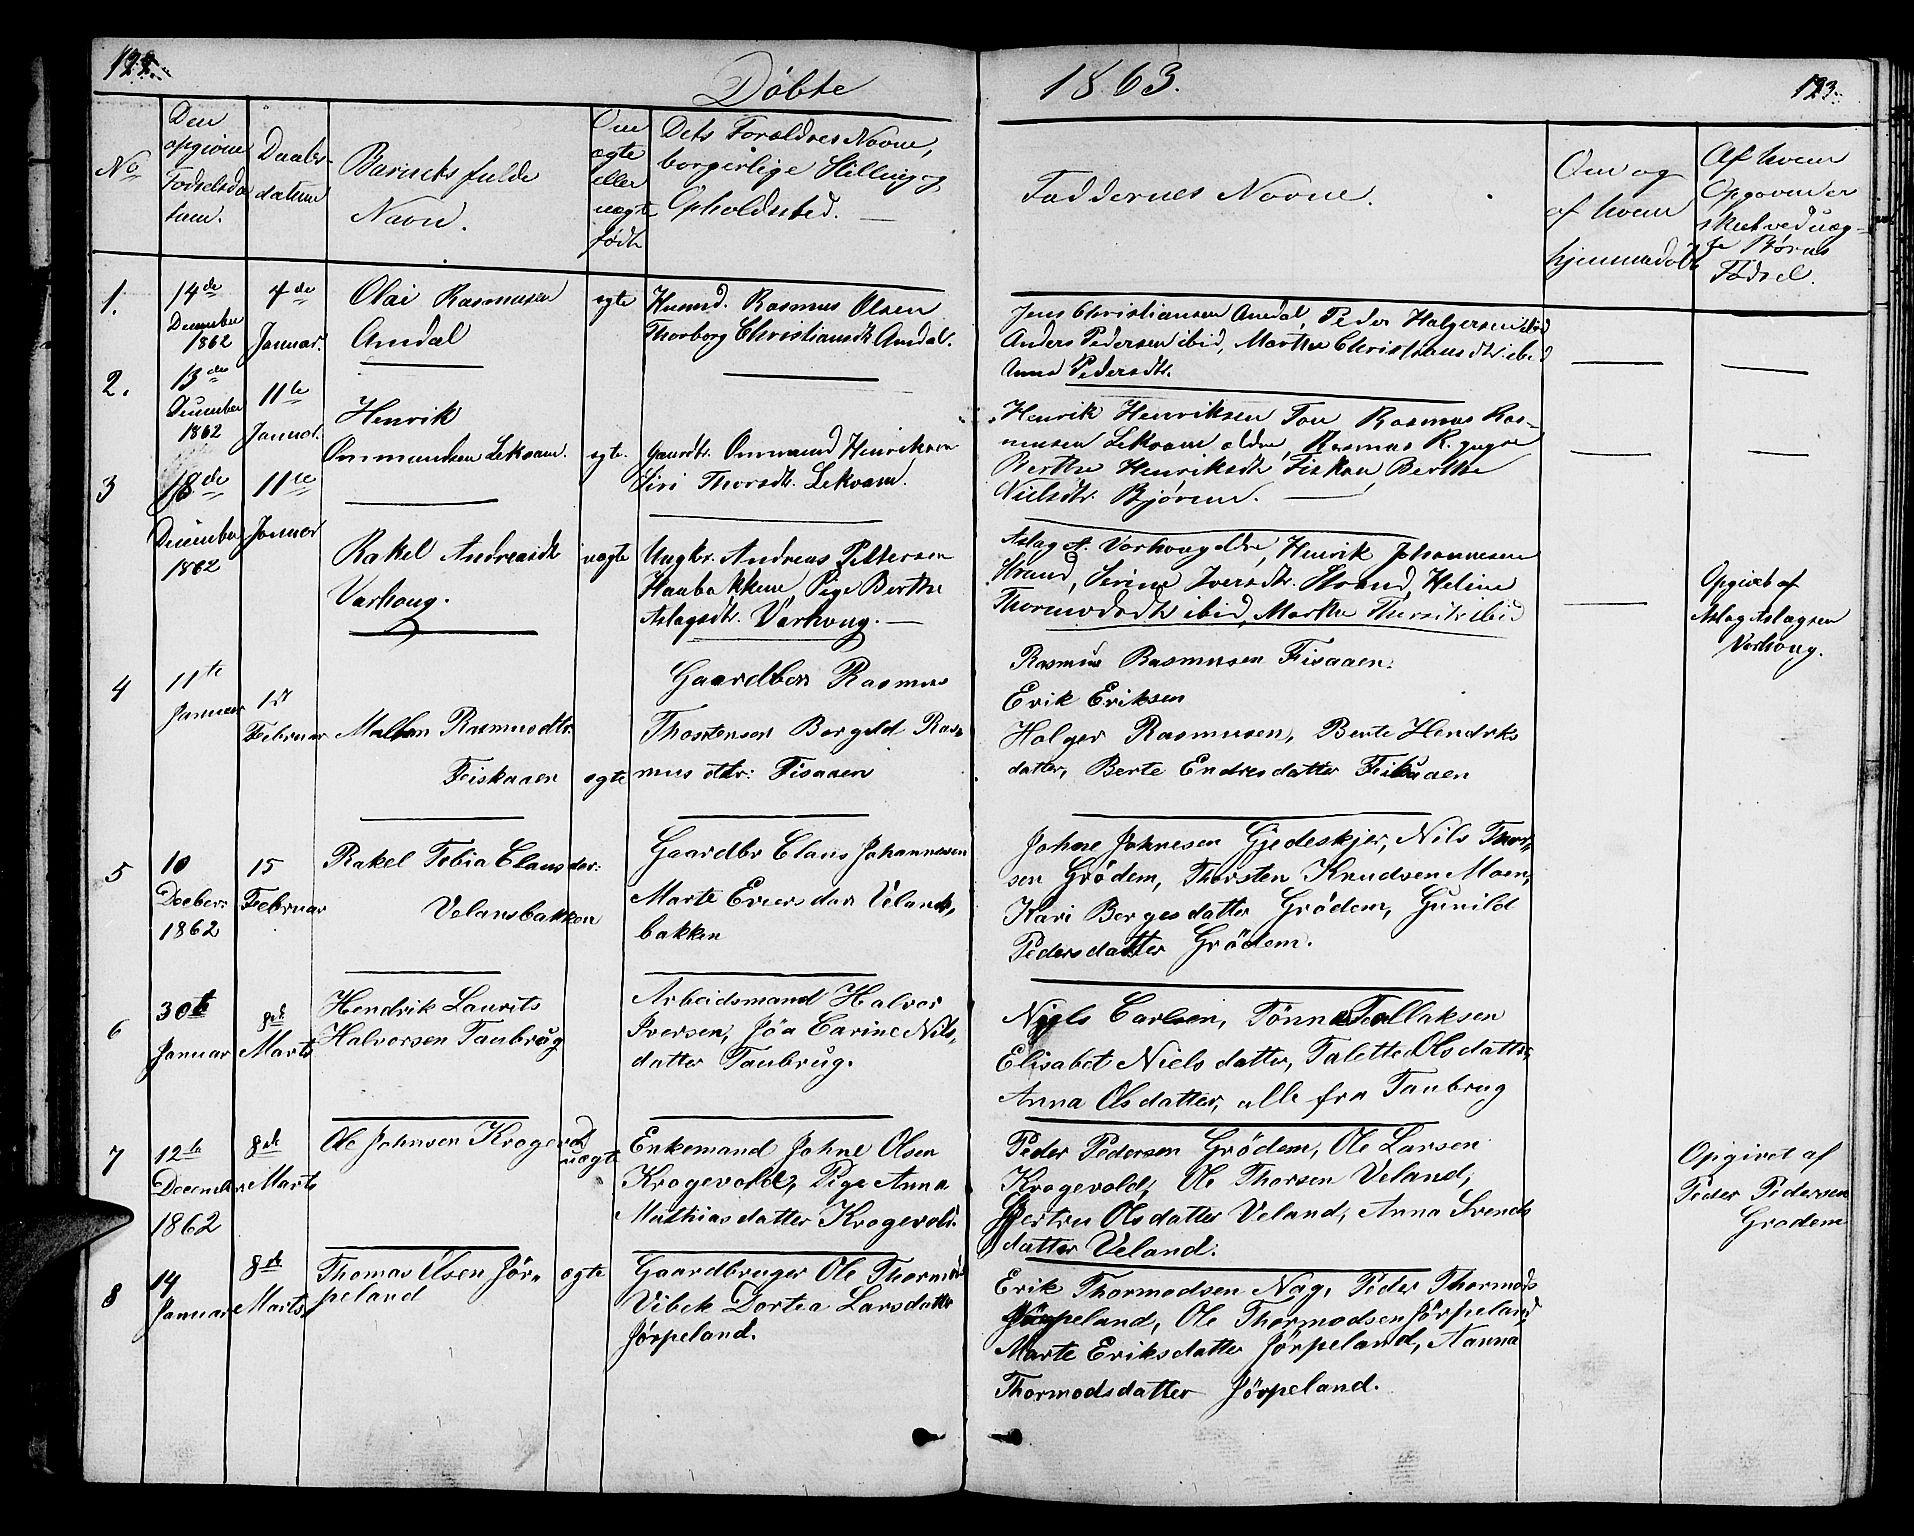 122.
Döbte
1863.
123.
No
Den
opgivne
Födselsda-
tum.
Daabs-
datum
Barnets fulde
Navn.
Om
ægte
eller
uægte
födt
Dets Forældres Navne,
borgerlige Stilling og
Opholdssted. —
Faddernes Navne.
Om og
af hvem
hjemmedöbt
Af hvem
Opgaven er
skeet ved uæg-
te Börns
Födsel.
1.
14de
December
1862
4de
Januar.
Olai Rasmusen
Amdal
ægte
Huusmd. Rasmus Olsen
Thorborg Christiansdt. Amdal.
Jens Christiansen Amdal, Peder Holgersen ibid
Anders Pedersen ibid, Marthe Christiansdt. ibid
Anna Pedersdt.
2.
13de
December
1862
11te
Januar.
Henrik
Ommundsen Lekvam.
ægte.
Gaardbr. Ommund Henriksen
Siri Thorsdt. Lekvam.
Henrik Henriksen Tou Rasmus Ras-
musen Lekvam ældre, Rasmus R. yngre
Berthe Henriksdt. Fiskaa, Berthe
Nielsdt. Björeim. —
3
18de
December
1862
11te
Januar
Rakel Andreasdt
Varhoug.
uægte
Ungkr. Andreas Pettersen
Haubakken, Pige Berthe
Aslagsdt. Varhoug. —
Aslag A. Varhoug ældre, Henrik Johannesen
Strand, Serine Iversdt. Strand, Heline
Thormodsdt ibid, Marthe Thorsdt. ibid
Opgivet af
Aslag Aslagsen
Varhoug.
4
11te
Januar
1st
Februar
Malhen Rasmusdtr.
Feiskaaen
ægte
Gaardber Rasmus
Thostensen Bergeld Ras-
mus dtr: Fisaaen
Rasmus Rasmusen Fisaaen.
Erik Eriksen
Holger Rasmusen, Berte Hendriks
datter, Berte Endresdatter Fiskaaen
5
10
Decber
1862
15
Februar
Rakel Tobia Clausdar:
Velansbakken
Gaardbr Claus Johannesen
Marte Eversdar Veland-
bakken
Johne Johnesen Gjedeskjer, Nils Thor-
sen Grödem, Thorsten Knudsen Moen,
Kari Bergesdatter Grödem, Gunild
Pedersdatter Grödem.
6
30te
Januar
8de
Marts
Hendrik Laurits
Halvorsen Taubrug
Arbeidsmand Halvor
Iversen, Jöa Carine Nils,
datter Taubrug.
Niels Carlsen, Tönnes Tallaksen
Elisabet Nielsdatter, Talette Olsdatter,
Anna Olsdatter, alle fra Taubrug
7
12te
December
1862
8de
Marts
Ole Johnsen Krogevold
uægte
Enkemand Johne Olsen
Krogevold, Pige Anna
Mathiasdatter Krogevold.
Peder Pedersen Grödem, Ole Larsen
Krogevold, Ole Thorsen Veland,
Bertru Olsdatter Veland, Anna Svends
datter Veland.
Opgivet af
Peder Pedersen
Gradem
8
14
Januar
8de
Marts
Thomas Olsen Jör-
peland
ægte
Gaardbruger Ole Thormods
Vibek Dortea Larsdatter
Jörpeland.
Erik Thormodsen Nag, Peder Thormods
Jörpeland, Ole Thormodsen Jörpeland,
Marte Eriksdatter Jörpeland, Aanna
Thormodsdatter Jörpeland.